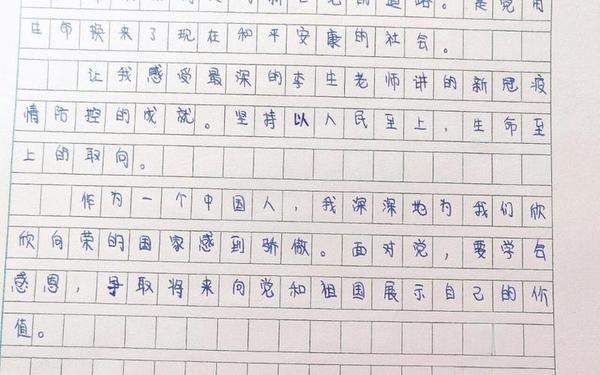 的道路。是党用
生命换来了现在和平安康的社会。
让我感受最深的李生老师讲的新冠疫
情防控的成就。坚持以人民至上，生命至
上的取向。
作为一个中国人，我深深地为我们欣
欣向荣的国家感到骄傲。面对党，要学会
感恩，争取将来向党和祖国展示自己的价
值。